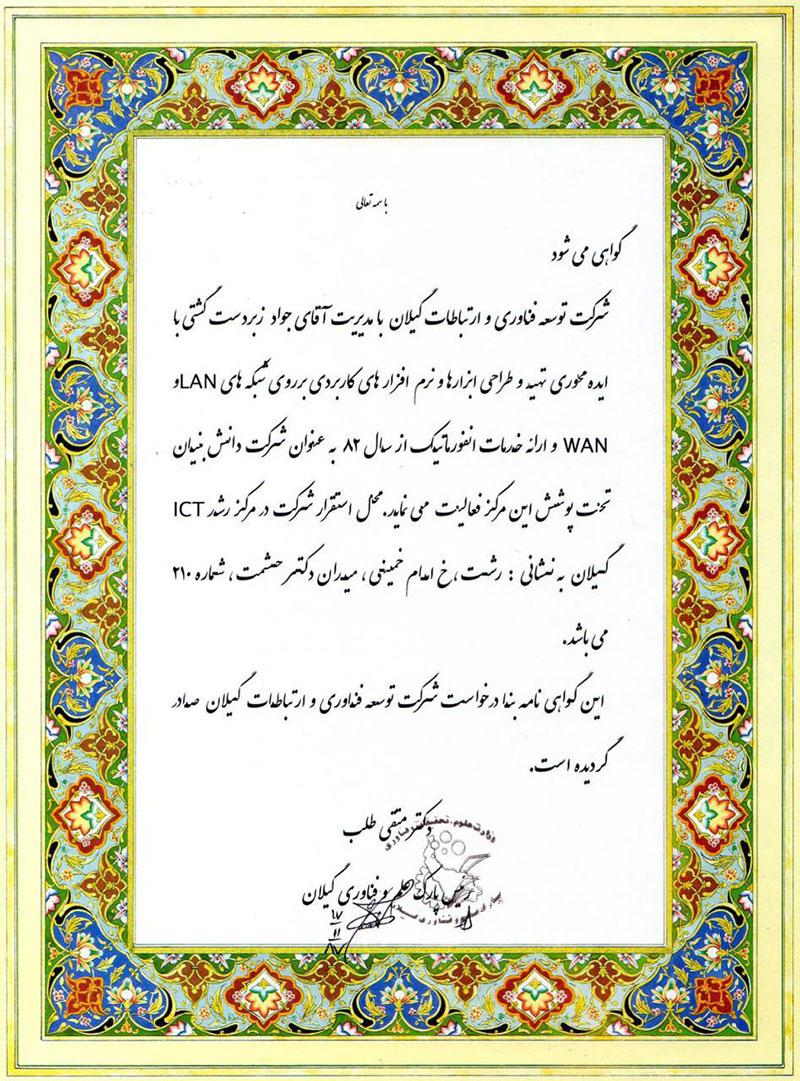 باسمه تعالی
گواهی می شود
شرکت توسعه فناوری و ارتباطات گیلان با مدیریت آقای جواد زبردست گشتی با
ایده محوری تهیه و طراحی ابزارها و نرم افزار های کاربردی بر روی شبکه های LAN و
WAN و ارائه خدمات انفورماتیک از سال ۸۲ به عنوان شرکت دانش بنیان
تحت پوشش این مرکز فعالیت می نماید. محل استقرار شرکت در مرکز رشد ICT
گیلان به نشانی : رشت ، خ امام خمینی ، میدان دکتر حشمت ، شماره ۲۱۰
می باشد.
این گواهی نامه بنا درخواست شرکت توسعه فناوری و ارتباطات گیلان صادر
گردیده است.
دکتر متقی طلب
وزارت علوم، تحقیقات و فناوری
رئیس پارک علم و فناوری گیلان
پارک علم و فناوری گیلان